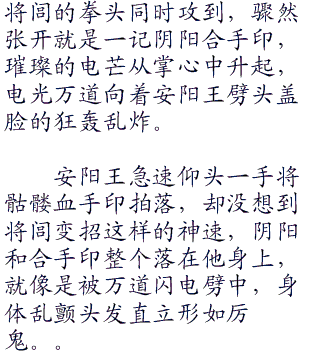 将闾的拳头同时攻到，骤然
张开就是一记阴阳合手印，
璀璨的电芒从掌心中升起，
电光万道向着安阳王劈头盖
脸的狂轰乱炸。
安阳王急速仰头一手将
骷髅血手印拍落，却没想到
将闾变招这样的神速，阴阳
和合手印整个落在他身上，
就像是被万道闪电劈中，身
体乱颤头发直立形如厉
鬼。。